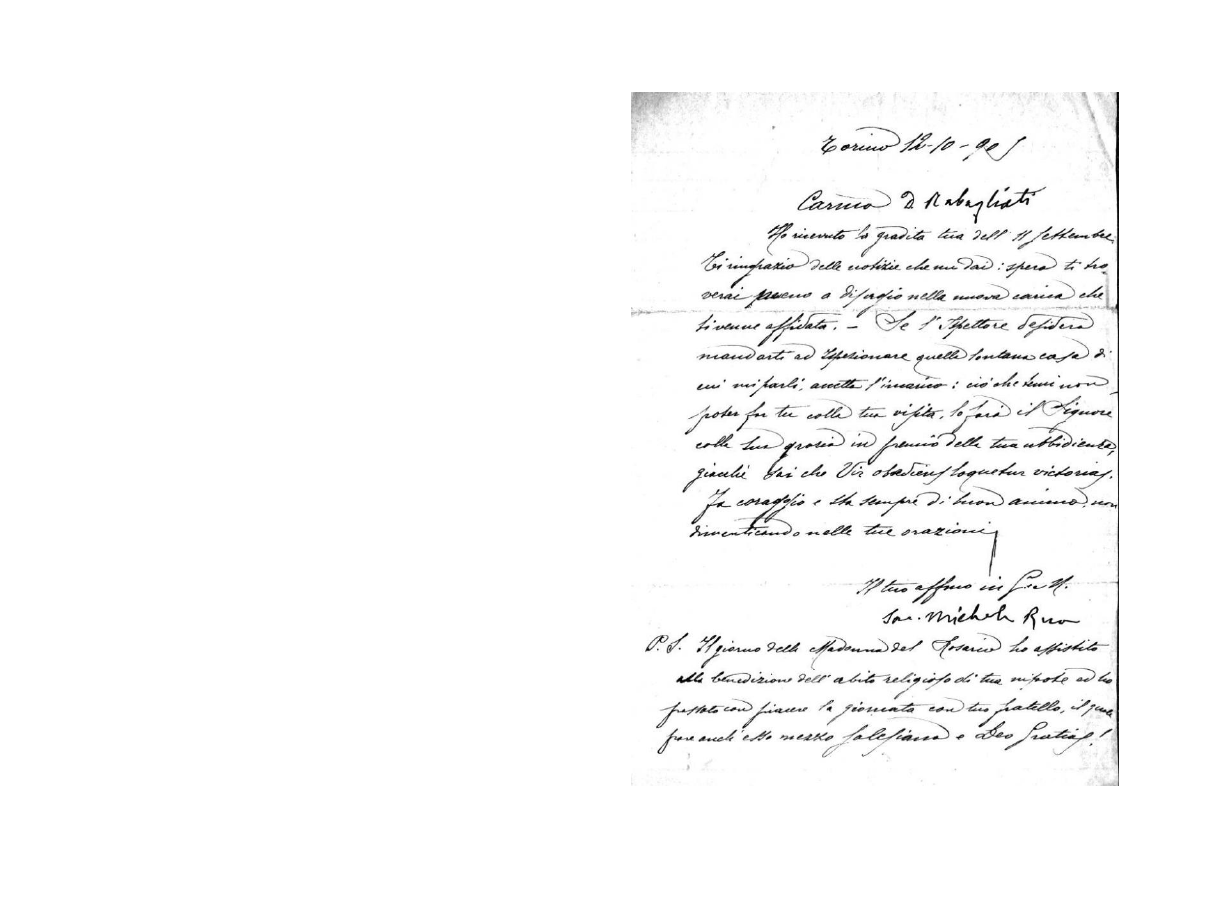 Torino 12-10-905
Carmo D Rabagliati
Ho ricevuto la gradita tua dell' 11 Settembre.
Ti ringrazio delle notizie che mi dai: spero ti tro-
verai meno a disagio nella nuova carica che
ti venne affidata. - Se l'Ispettore desidera
mandarti ad Ispezionare quella lontana casa di
cui mi parli, accetta l'incarico: ciò che temi non
poter far tu colla tua visita, lo farà il Signore
colla sua grazia in premio della tua ubbidienza,
giacchè sai che Vir obediens loquetur victorias.
Fa coraggio e sta sempre di buon animo, non
dimenticando nelle tue orazioni
Il tuo affmo in G. e M.
Sac. Michele Rua
P. S. Il giorno della Madonna del Rosario ho assistito
alla benedizione dell' abito religioso di tua nipote ed ho
passato con piacere la giornata con tuo fratello, il quale
pare anch' esso mezzo salesiano e Deo Gratias!